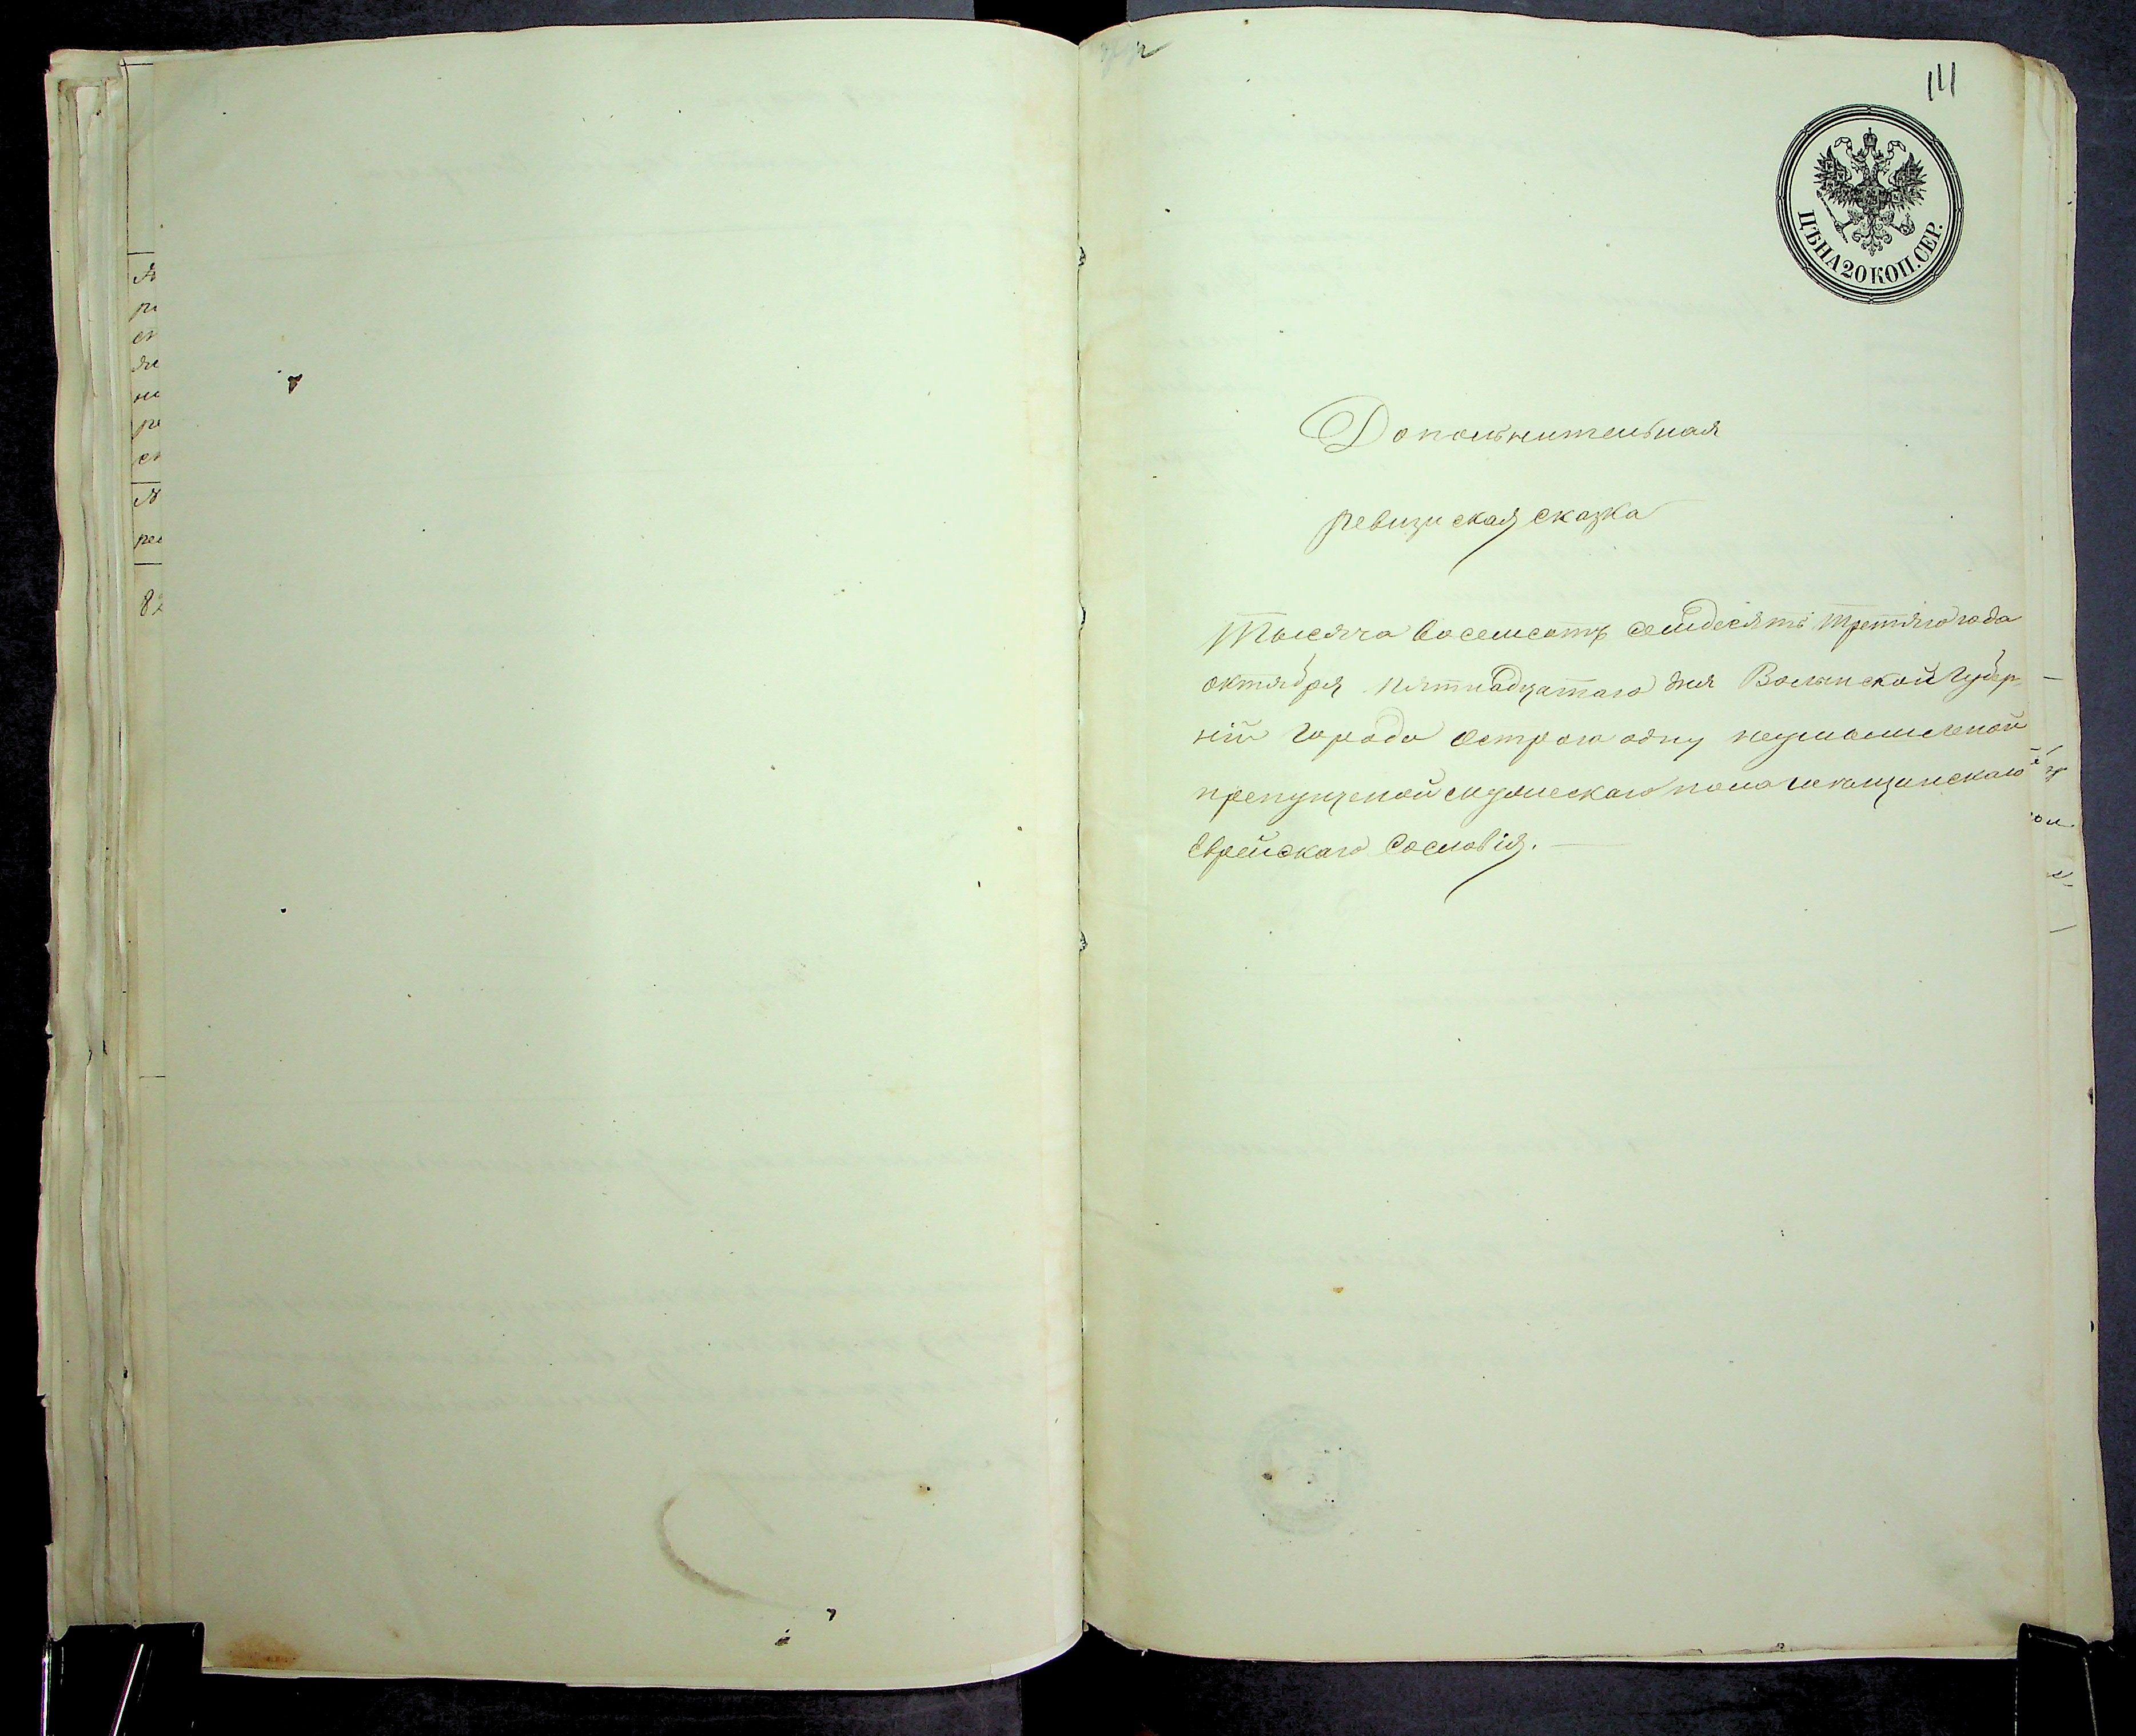 111
ЦѢНА 20 КОП. СЕР.
Дополнительная
ревизиская сказка
Тысяча восемсотъ семдесятъ третяго года
октября пятнадцатаго дня Волынской Губер-
нiи Города Острога одну
пропущеной мужескаго пола мещанскаго
Еврейскаго Сословiя. —